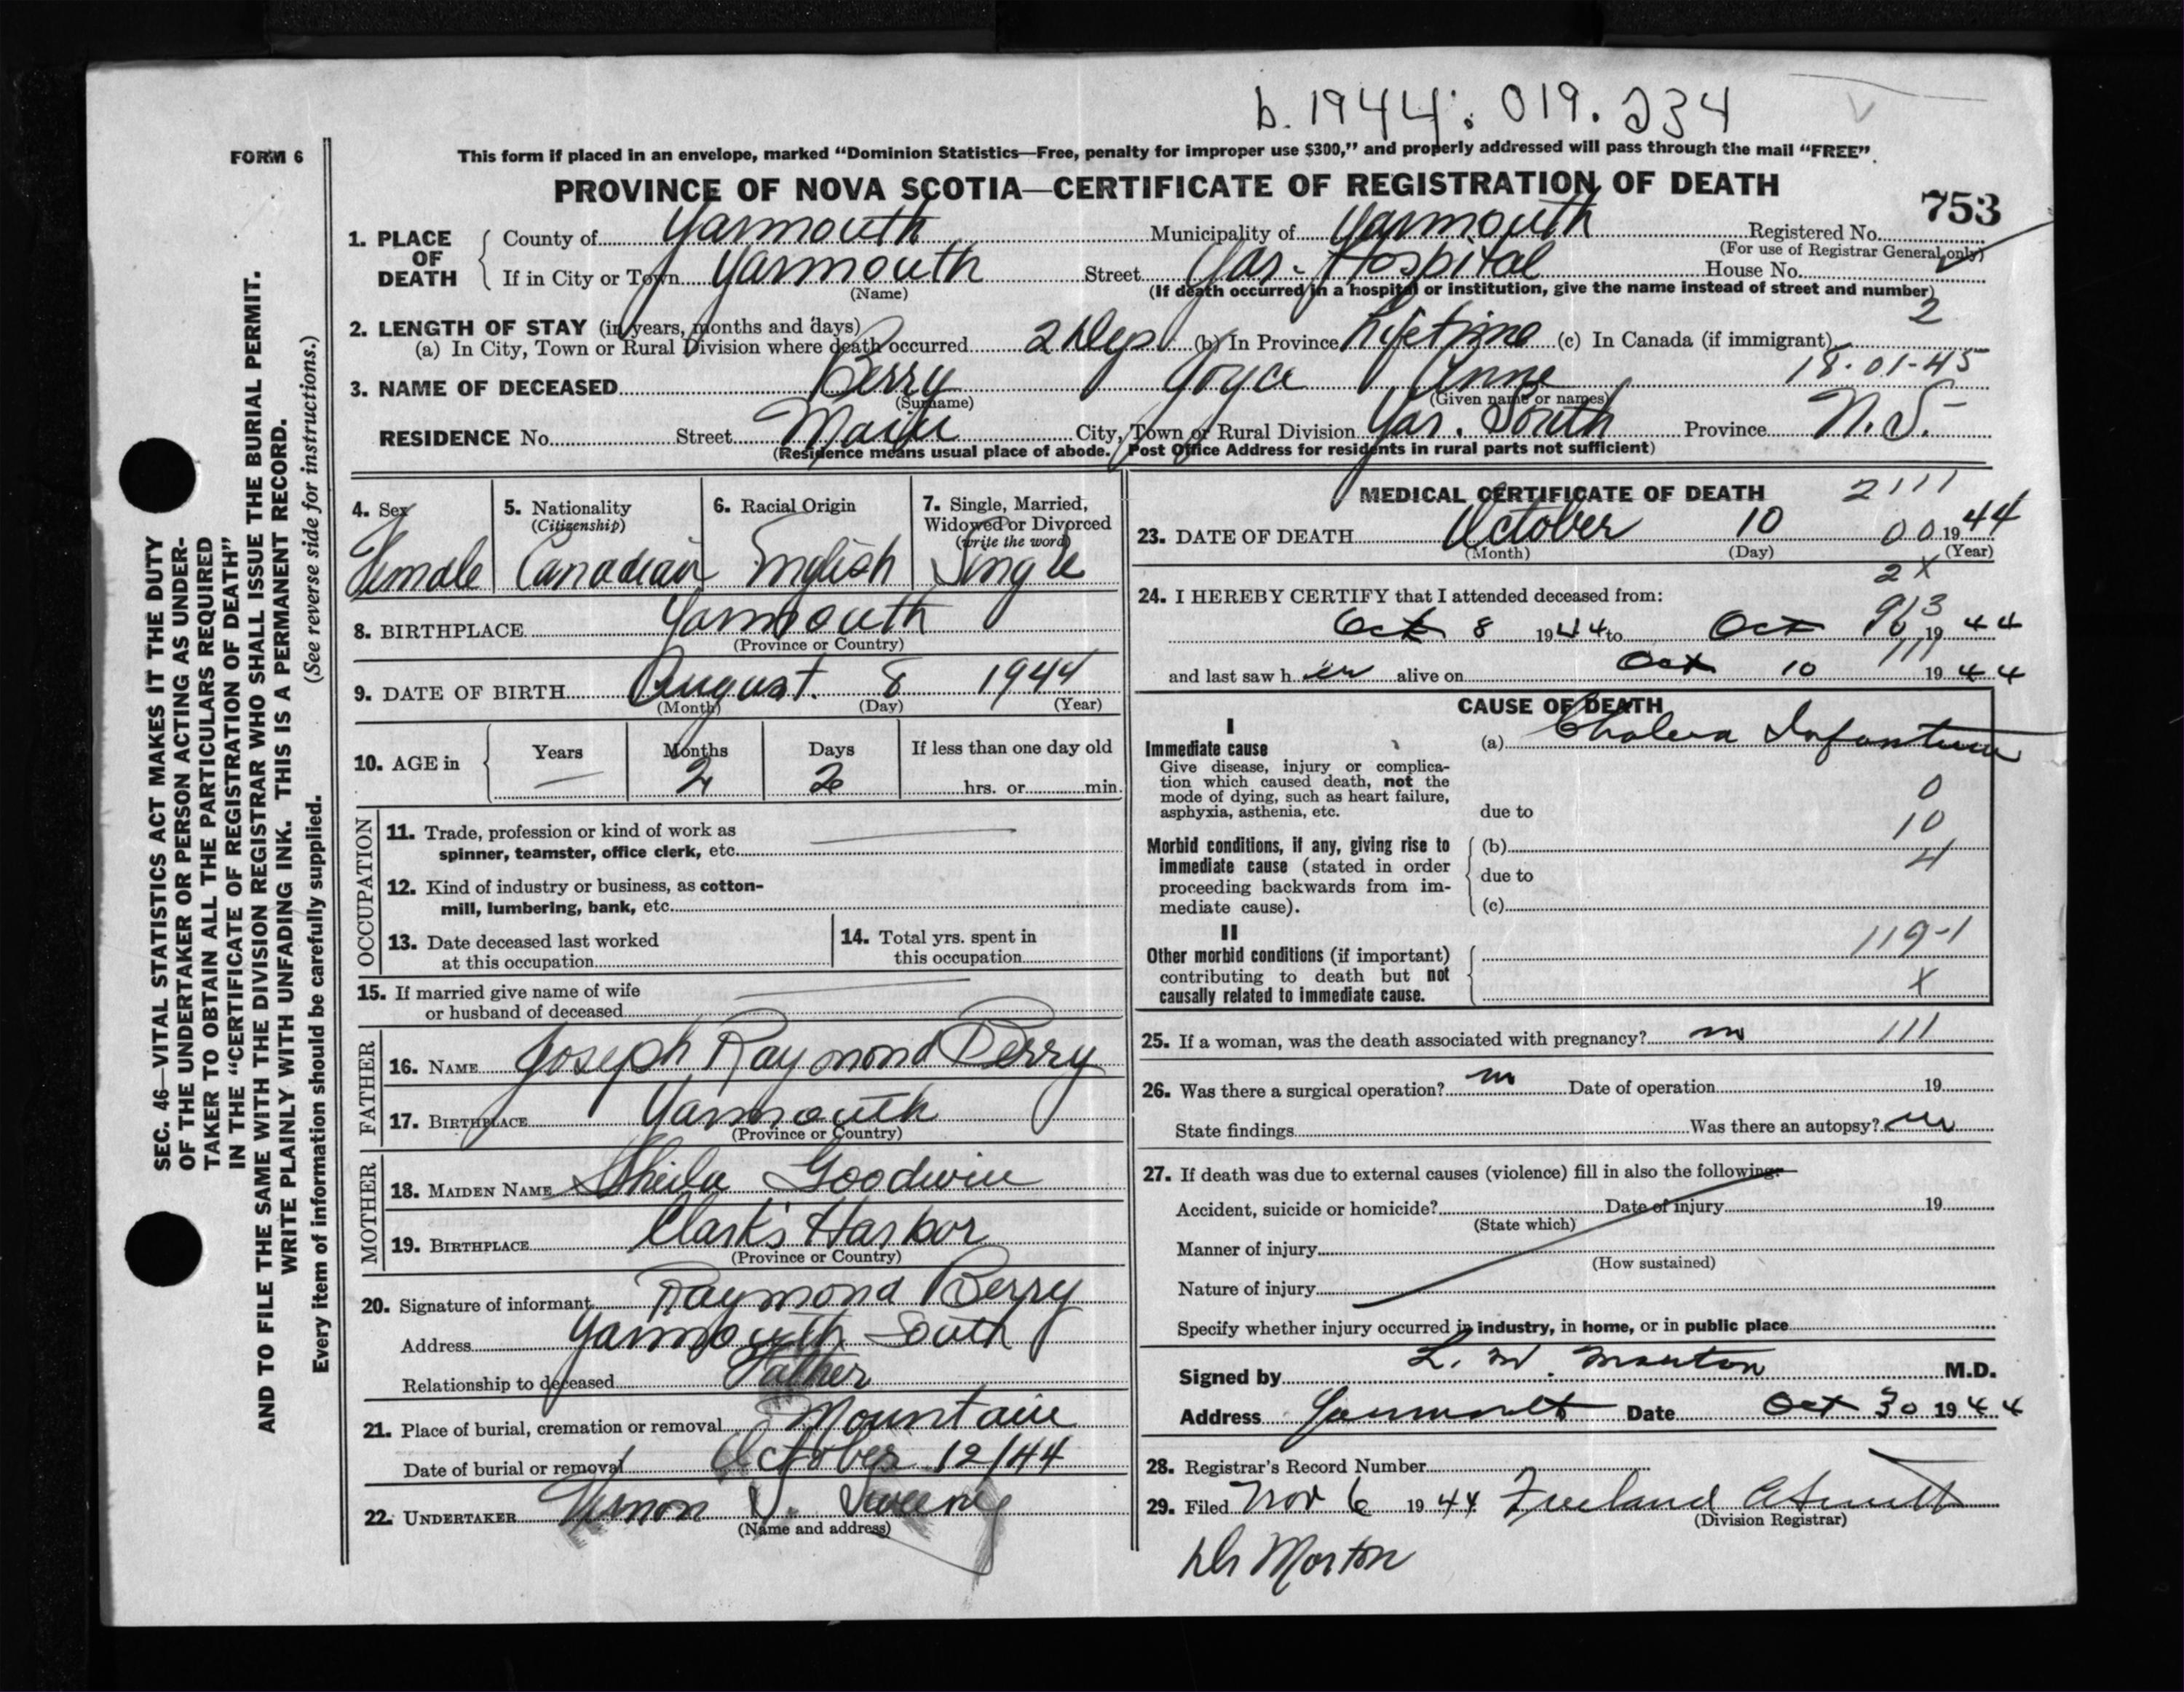 b. 1944: 019. 234
FORM 6
This form if placed in an envelope, marked “Dominion Statistics—Free, penalty for improper use $300,” and properly addressed will pass through the mail “FREE”.
PROVINCE OF NOVA SCOTIA—CERTIFICATE OF REGISTRATION OF DEATH
753
1. PLACE OF DEATH
County of Yarmouth Municipality of Yarmouth Registered No.
(For use of Registrar General only)
If in City or Town Yarmouth Street Yar. Hospital House No.
(Name) (If death occurred in a hospital or institution, give the name instead of street and number)
2
2. LENGTH OF STAY (in years, months and days)
(a) In City, Town or Rural Division where death occurred 2 Dys (b) In Province Lifetime (c) In Canada (if immigrant)
18-01-45
3. NAME OF DECEASED Berry Joyce Anne
(Surname) (Given name or names)
RESIDENCE No. Street Main City, Town or Rural Division Yar. South Province N.S.
(Residence means usual place of abode. Post Office Address for residents in rural parts not sufficient)
4. Sex Female
5. Nationality (Citizenship) Canadian
6. Racial Origin English
7. Single, Married, Widowed or Divorced (write the word) Single
8. BIRTHPLACE Yarmouth
(Province or Country)
9. DATE OF BIRTH August 8 1944
(Month) (Day) (Year)
10. AGE in Years — Months 2 Days 2 If less than one day old
hrs. or min.
OCCUPATION
11. Trade, profession or kind of work as
spinner, teamster, office clerk, etc.
12. Kind of industry or business, as cotton-
mill, lumbering, bank, etc.
13. Date deceased last worked
at this occupation
14. Total yrs. spent in
this occupation
15. If married give name of wife
or husband of deceased
FATHER
16. NAME Joseph Raymond Berry
17. BIRTHPLACE Yarmouth
(Province or Country)
MOTHER
18. MAIDEN NAME Sheila Goodwin
19. BIRTHPLACE Clark's Harbor
(Province or Country)
20. Signature of informant Raymond Berry
Address Yarmouth South
Relationship to deceased Father
21. Place of burial, cremation or removal Mountain
Date of burial or removal October 12/44
22. UNDERTAKER Vernon Sweeny
(Name and address)
MEDICAL CERTIFICATE OF DEATH
2111
23. DATE OF DEATH October 10 00 1944
(Month) (Day) (Year)
2 X
24. I HEREBY CERTIFY that I attended deceased from:
913
Oct 8 1944 to Oct 10 1944
111
and last saw her alive on Oct 10 1944
CAUSE OF DEATH
I
Immediate cause (a) Cholera Infantum
Give disease, injury or complica-
tion which caused death, not the
mode of dying, such as heart failure,
asphyxia, asthenia, etc. due to
0
10
4
Morbid conditions, if any, giving rise to
immediate cause (stated in order
proceeding backwards from im-
mediate cause).
(b)
due to
(c)
II
119-1
Other morbid conditions (if important)
contributing to death but not
causally related to immediate cause.
X
25. If a woman, was the death associated with pregnancy? no 111
26. Was there a surgical operation? no Date of operation 19
State findings Was there an autopsy? no
27. If death was due to external causes (violence) fill in also the following:
Accident, suicide or homicide? Date of injury 19
(State which)
Manner of injury
(How sustained)
Nature of injury
Specify whether injury occurred in industry, in home, or in public place
Signed by L. M. Morton M.D.
Address Yarmouth Date Oct 30 1944
28. Registrar's Record Number
29. Filed Nov 6 1944 Freeland
(Division Registrar)
Dr Morton
SEC. 46—VITAL STATISTICS ACT MAKES IT THE DUTY
OF THE UNDERTAKER OR PERSON ACTING AS UNDER-
TAKER TO OBTAIN ALL THE PARTICULARS REQUIRED
IN THE “CERTIFICATE OF REGISTRATION OF DEATH”
AND TO FILE THE SAME WITH THE DIVISION REGISTRAR WHO SHALL ISSUE THE BURIAL PERMIT.
WRITE PLAINLY WITH UNFADING INK. THIS IS A PERMANENT RECORD.
Every item of information should be carefully supplied. (See reverse side for instructions.)